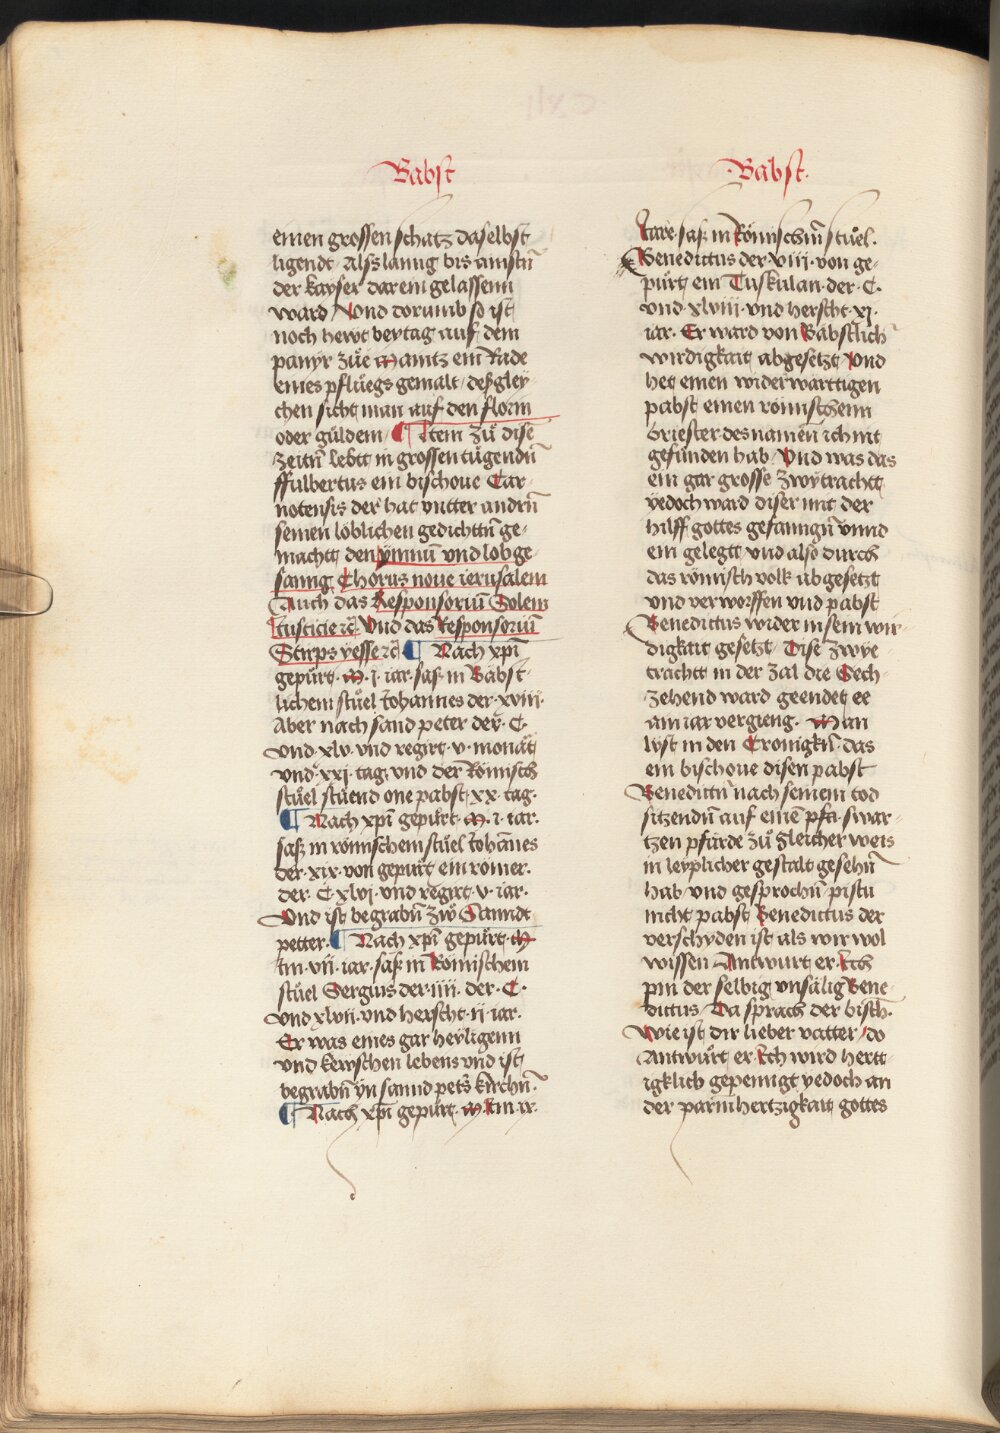 Babst
einen grossen schatz daselbst
ligendt Alsslanng bis am stn̄
der kayser darein gelassenn
ward / Vnd dorumb so ist
noch hewt beytag auf dem
panyr zůe Mamtz ein Rade
eines pflůegs gemalt / deßgley¬
chen sicht man auf den florin
oder gůldem / ¶ Item zů dise
zeitn̄ lebtt in grossen tugendn̄
ffulbertus ein bischoue Car¬
notensis der hat vntter andrn̄
seinen löblichen gedichttn̄ ge¬
machtt den ymnū vnd lobge¬
sanng Chorus noue ierusalem
Auch das Responsoriū Solem
Iusticie ꝛc̄ Vnd das Responsoriū
Stirps yesse ꝛc̄ ¶ Nach xp̄i
gepůrt · M · j · iar · saß in Babst¬
lichem stůel Iohannes der · xviii ·
Aber nach sand peter der · C ·
vnd · xlv · vnd regirt · v · monat
vnd · xxj · tag · vnd der Römisch
stůel stůend one pabst · xx · tag ·
¶ Nach xp̄i gepůrt · M · ꝛ · iar ·
saß in römischem stůel Iohān̄es
der · xix · von gepurt ein römer ·
der · C · xlvj · vnd regirt · v · iar ·
Vnd ist begrabn̄ zw̌ Sanndt
petter · ¶ Nach xp̄i gepůrt · M
Im · vii · iar · saß in Römischem
stůel Sergius der · iiii · der · C ·
vnd xlvii · vnd herscht · ii · iar ·
Er was eines gar heyligenn
vnd kewschen lebens vnd ist
begrabn̄ yn sannd pets kirchn̄ ·
¶ Nach xp̄i gepůrt · M · Im · ix ·
· Babst ·
Iare · saß in Römischn̄ stůel ·
Benedictus der · viii · von ge¬
purt ein Tuskulan · der · C ·
vnd · xlviii · vnd herscht · xj ·
iar · Er ward von Bäbstlich̄
wirdigkait abgesetzt / Vnd
het einen widerwärttigen
pabst einen römischenn
briester des namen ich nit
gefunden hab / Vnd was das
ein gar grosse zwytrachtt
yedoch ward diser mit der
hilff gottes gefanngn̄ vnnd
ein gelegtt vnd also durch
das römisch volk abgesetzt
vnd verworffen vnd pabst
Benedictus wider in sein wir¬
digkait gesetzt / Dise zwye
trachtt in der zal die Sech¬
zehend ward geendet ee
am iar vergieng · Man
lyst in den Cronigkn̄ · das
ein bischoue disen pabst
Benedictn̄ nach seinem tod
sitzendn̄ auf einē pfa · swar¬
tzen pfärde zů gleicher weis
in leyplicher gestalt gesehn̄
hab · vnd gesprochn̄ · pistu
nicht pabst Benedictus der
verschyden ist als wir wol
wissen Antwurt er · Ich
pin der selbig vnsälig Bene¬
dictus / Da sprach der bisch ·
Wie ist dir lieber vatter / do
Antwůrt er Ich wird hertt¬
igklich gepeinigt yedoch an
der parmhertzigkait gottes